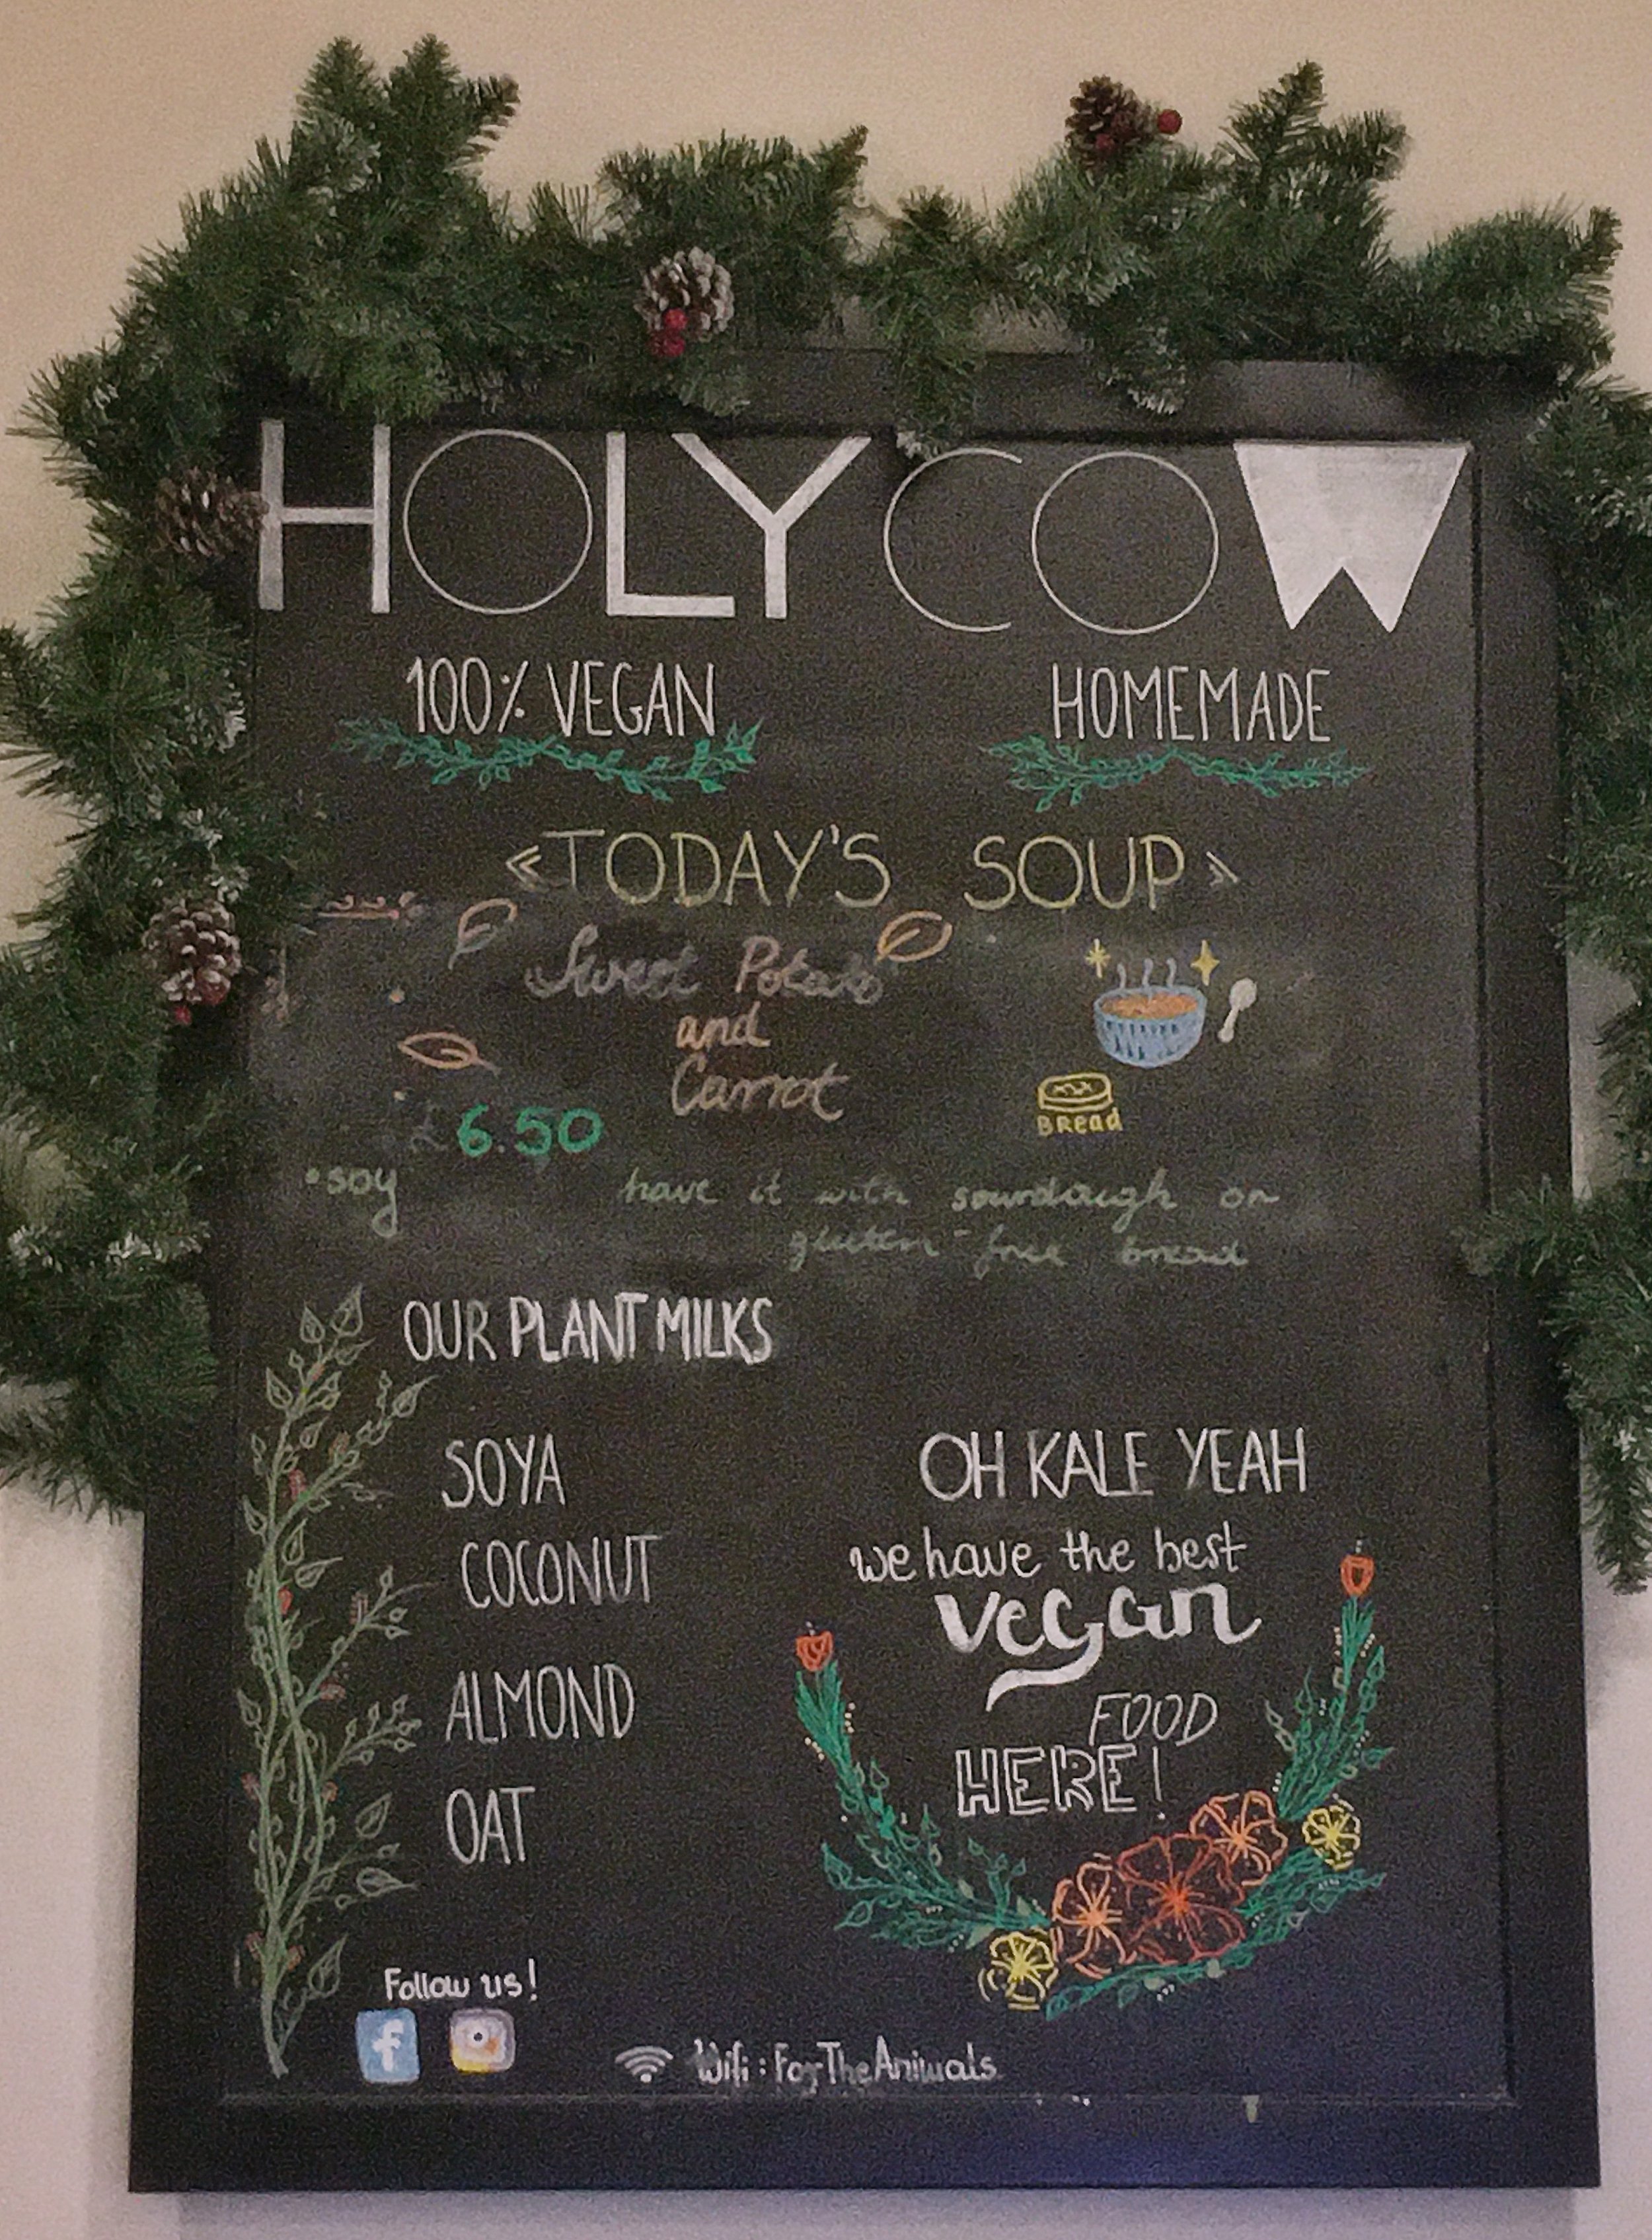 HOLY COW
100% VEGAN HOMEMADE
«TODAY'S SOUP»
Sweet Potato
and
Carrot
BREad
£6.50
•soy
have it with sourdough or
gluten-free bread
OUR PLANT MILKS
SOYA
COCONUT
ALMOND
OAT
OH KALE YEAH
we have the best
vegan
FOOD
HERE!
Follow us!
f
Wifi: ForTheAnimals